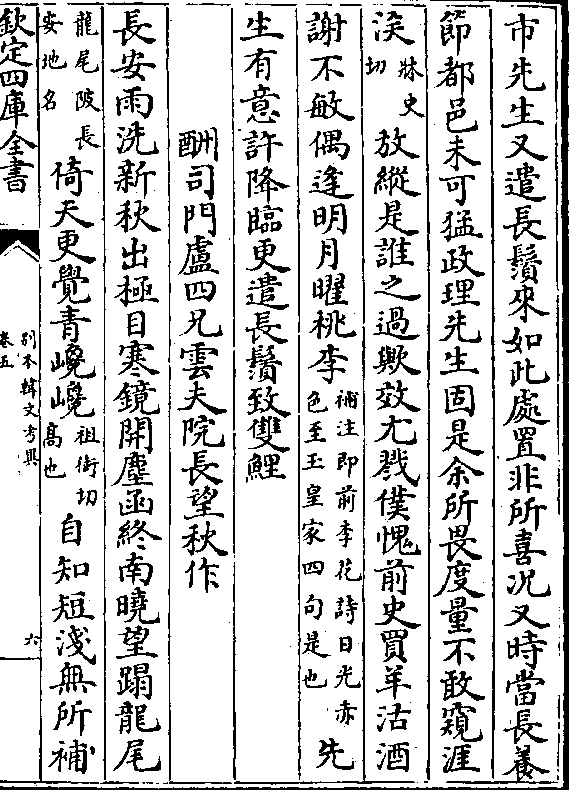 市先生又遣長鬚來如此處置非所喜况又時當長養
節都邑未可猛政理先生固是余所畏度量不敢窺涯
涘牀史切放縱是誰之過歟效尤戮僕愧前史買羊沽酒
謝不敏偶逢明月曜桃李補注即前李花詩日光赤色至玉皇家四句是也先
生有意許降臨更遣長鬚致雙鯉
酬司門盧四兄雲夫院長望秋作
長安雨洗新秋出極目寒鏡開塵函終南曉望蹋龍尾
龍尾陂長安地名倚天更覺青巉巉祖銜切高也自知短淺無所補
欽定四庫全書
别本韓文考異
卷五
六